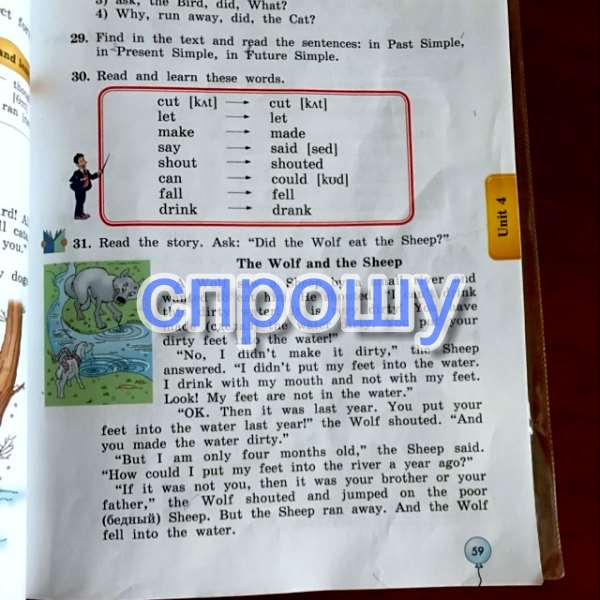 3) ask, the Bird, did, What?
4) Why, run away, did, the Cat?
29. Find in the text and read the sentences: in Past Simple,
in Present Simple, in Future Simple.
30. Read and learn these words.
cut [kʌt] → cut [kʌt]
let → let
make → made
say → said [sed]
shout → shouted
can → could [kʊd]
fall → fell
drink → drank
Unit 4
31. Read the story. Ask: “Did the Wolf eat the Sheep?”
The Wolf and the Sheep
спрошу
dirty feet the water!”
“No, I didn’t make it dirty,” the Sheep
answered. “I didn’t put my feet into the water.
I drink with my mouth and not with my feet.
Look! My feet are not in the water.”
“OK. Then it was last year. You put your
feet into the water last year!” the Wolf shouted. “And
you made the water dirty.”
“But I am only four months old,” the Sheep said.
“How could I put my feet into the river a year ago?”
“If it was not you, then it was your brother or your
father,” the Wolf shouted and jumped on the poor
(бедный) Sheep. But the Sheep ran away. And the Wolf
fell into the water.
59